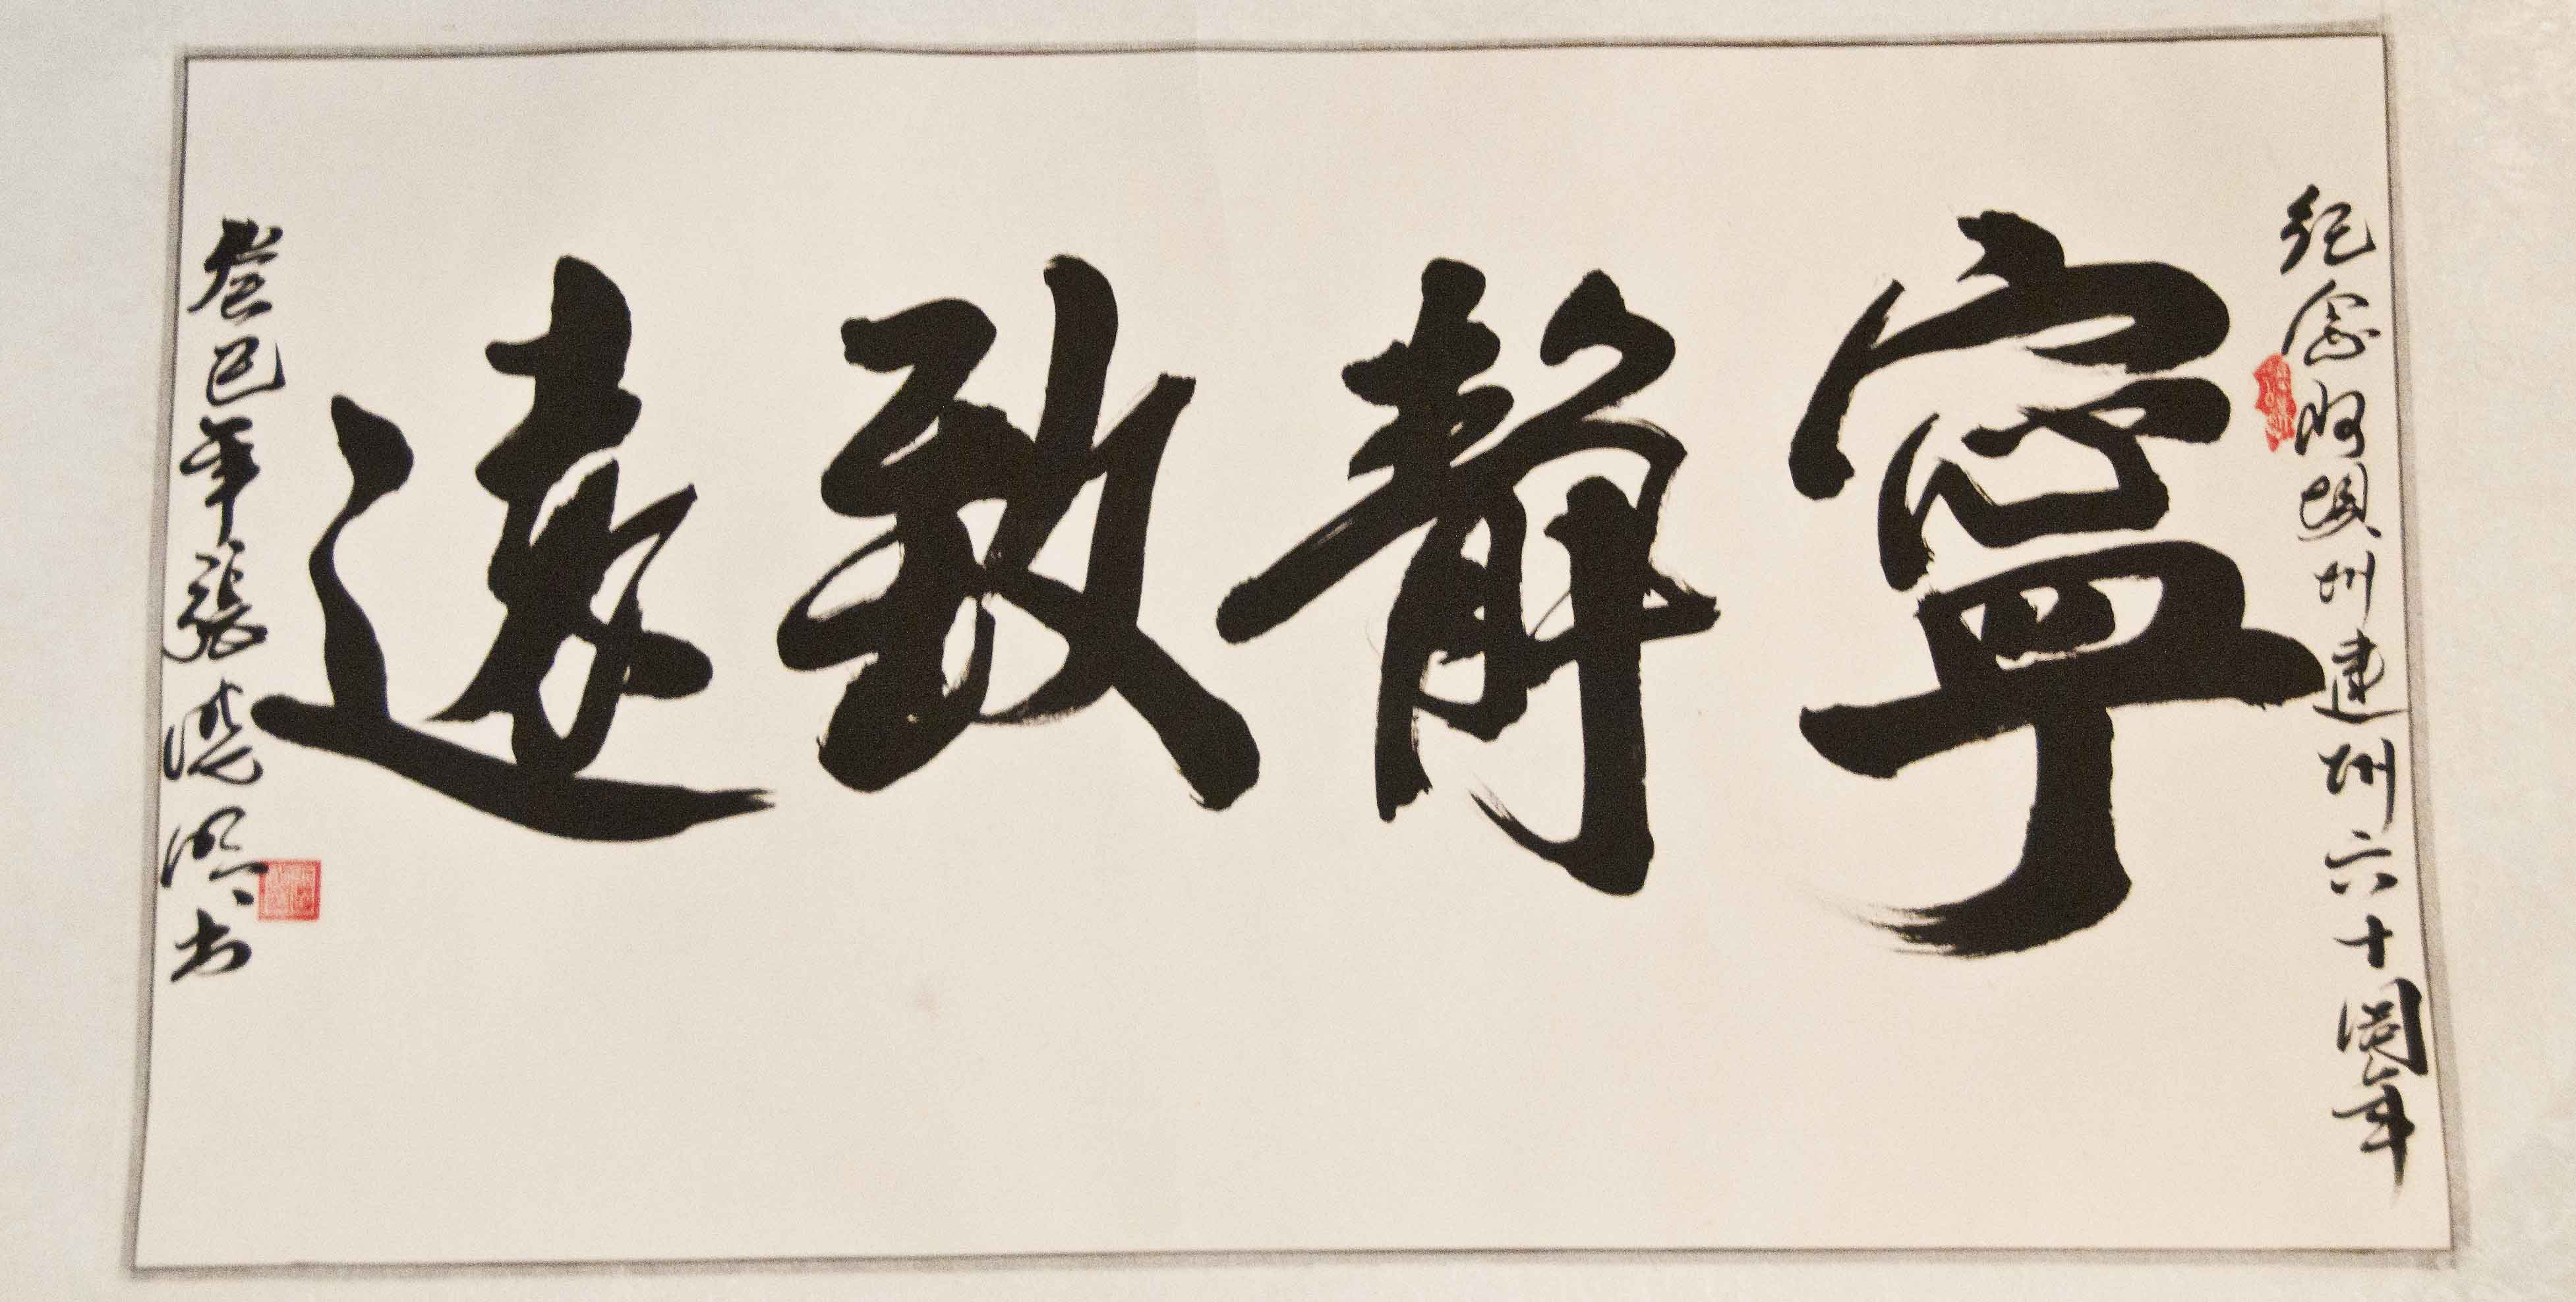 紀念阿壩州建州六十周年
寧靜致遠
癸巳年張曉明書